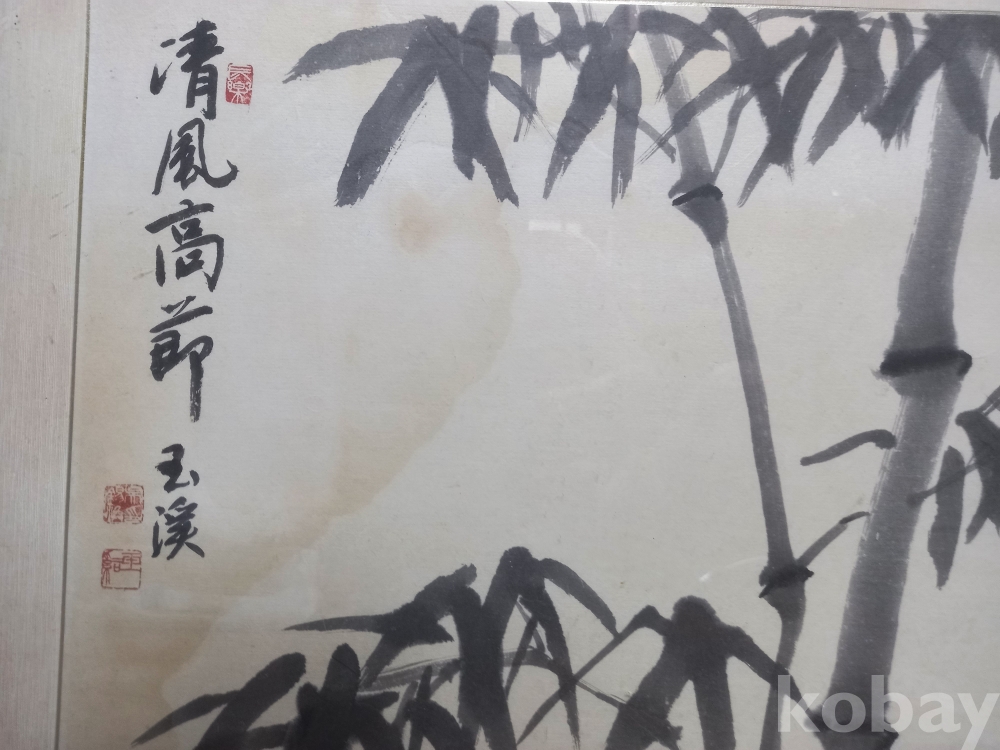 清風高節
玉溪
kobay